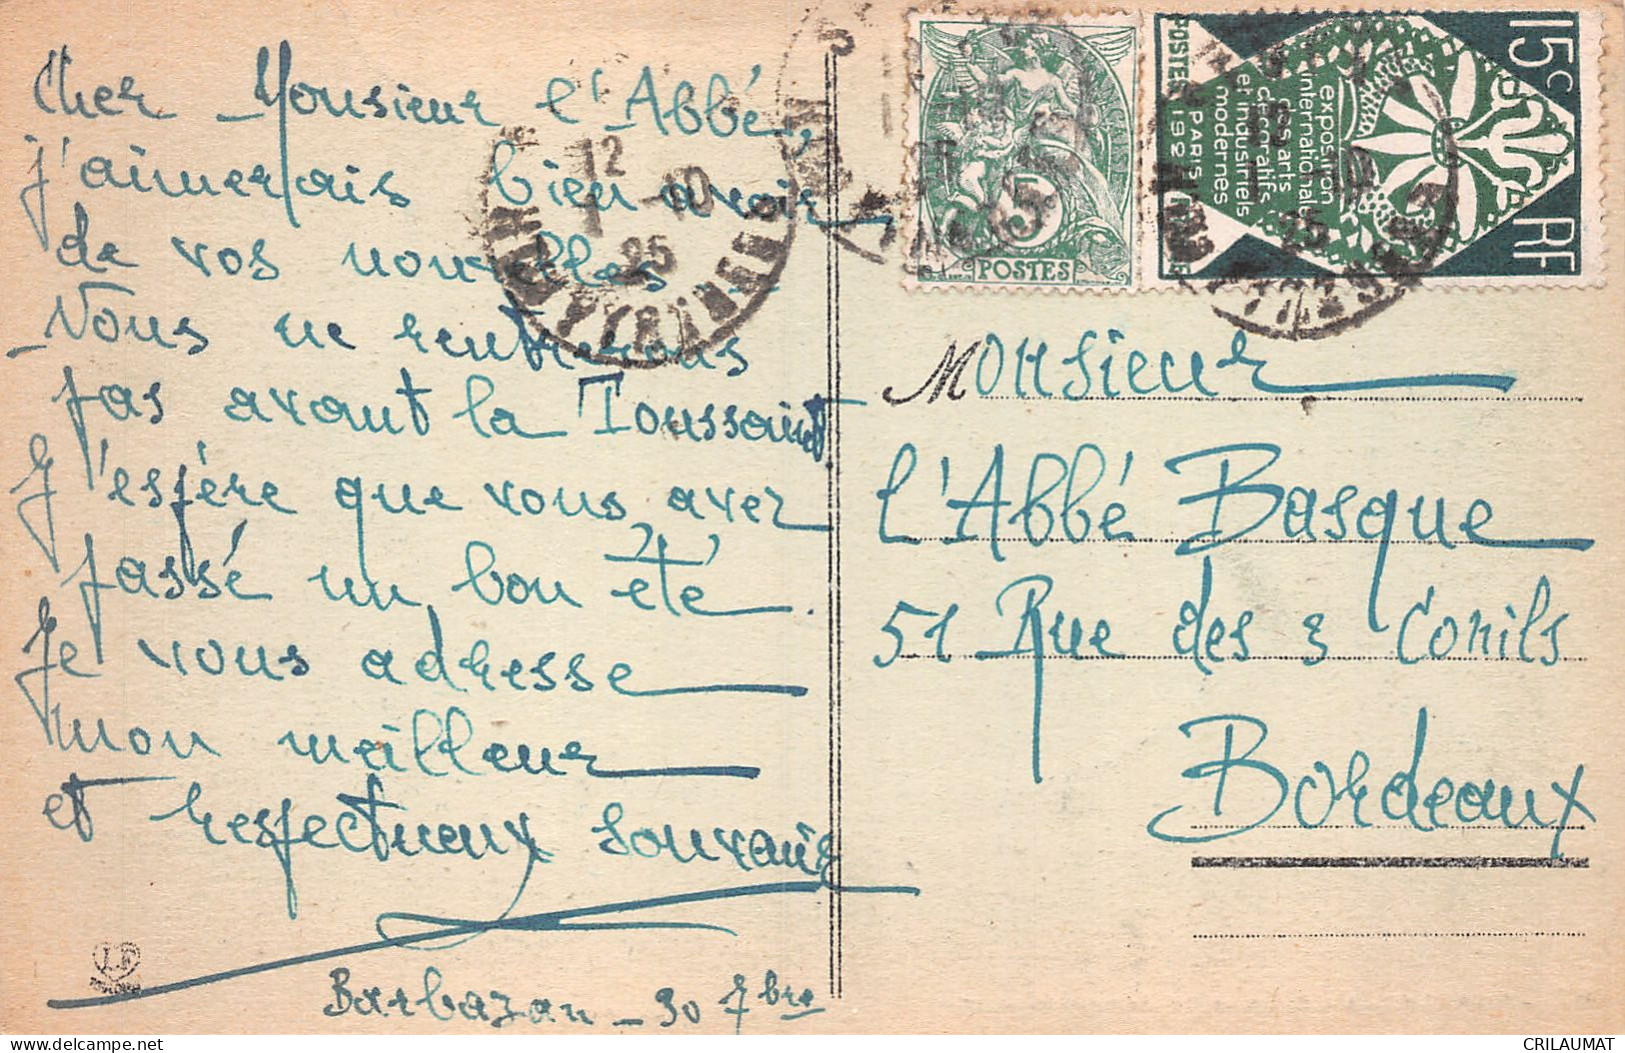 Cher Monsieur l'Abbé,
j'aimerais bien avoir
de vos nouvelles
Nous ne rentrerons
pas avant la Toussaint.
J'espère que vous avez
passé un bon été.
Je vous adresse
mon meilleur
et respectueux souvenir
Barbazan - 30 7bre
J.F
12
1 -10
25
POSTES
5
15c RF
exposition
internationale
des arts
décoratifs
et industriels
modernes
POSTES PARIS 192
12
25
Monsieur
l'Abbé Basque
51 Rue des 3 Conils
Bordeaux
CRILAUMAT